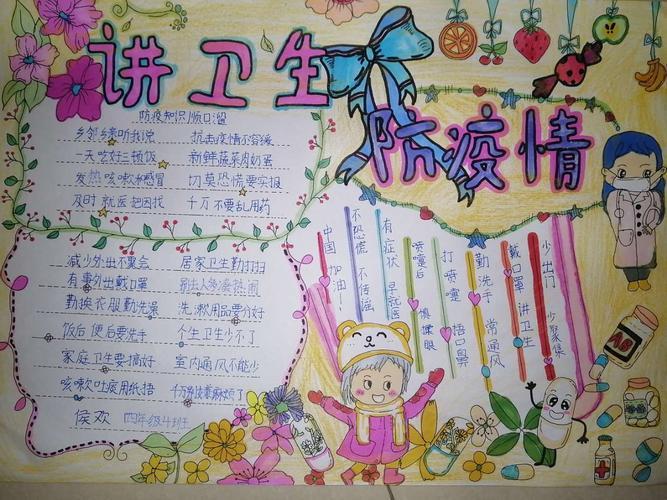 讲卫生
防疫情
防疫知识顺口溜
乡邻乡亲听我说 抗击疫情不容缓
一天吃好三顿饭 新鲜蔬菜肉奶蛋
发热咳嗽和感冒 切莫恐慌要实报
及时就医把因找 千万不要乱用药
减少外出不聚会 居家卫生勤打扫
有事外出戴口罩 别去人多凑热闹
勤换衣服勤洗澡 洗漱用品要分好
饭后便后要洗手 个生卫生少不了
家庭卫生要搞好 室内通风不能少
咳嗽吐痰用纸捂
侯欢 四年级4班
少出门 少聚集
戴口罩 讲卫生
勤洗手 常通风
打喷嚏 捂口鼻
喷嚏后 慎揉眼
有症状 早就医
不恐慌 不传谣
中国加油!